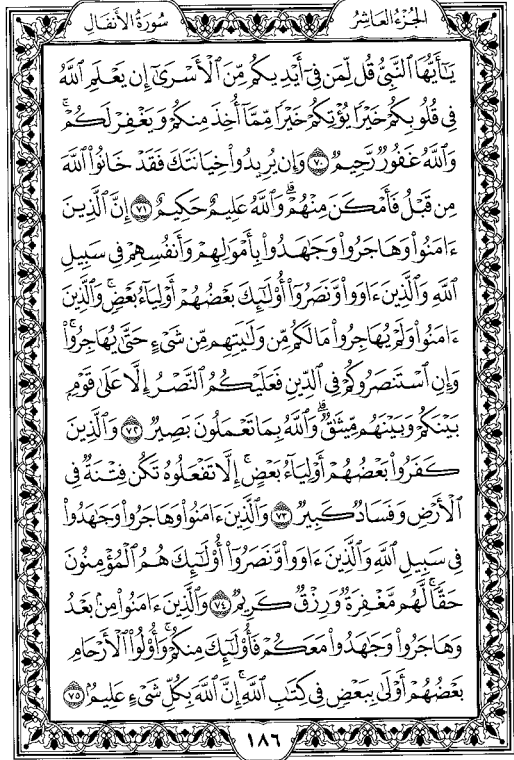 الجزء العاشر
سورة الأنفال
يَـٰٓأَيُّهَا ٱلنَّبِىُّ قُل لِّمَن فِىٓ أَيْدِيكُم مِّنَ ٱلْأَسْرَىٰٓ إِن يَعْلَمِ ٱللَّهُ
فِى قُلُوبِكُمْ خَيْرًا يُؤْتِكُمْ خَيْرًا مِّمَّآ أُخِذَ مِنكُمْ وَيَغْفِرْ لَكُمْ ۗ
وَٱللَّهُ غَفُورٌ رَّحِيمٌ ٧٠ وَإِن يُرِيدُوا۟ خِيَانَتَكَ فَقَدْ خَانُوا۟ ٱللَّهَ
مِن قَبْلُ فَأَمْكَنَ مِنْهُمْ ۗ وَٱللَّهُ عَلِيمٌ حَكِيمٌ ٧١ إِنَّ ٱلَّذِينَ
ءَامَنُوا۟ وَهَاجَرُوا۟ وَجَـٰهَدُوا۟ بِأَمْوَٰلِهِمْ وَأَنفُسِهِمْ فِى سَبِيلِ
ٱللَّهِ وَٱلَّذِينَ ءَاوَوا۟ وَّنَصَرُوٓا۟ أُو۟لَـٰٓئِكَ بَعْضُهُمْ أَوْلِيَآءُ بَعْضٍ ۚ وَٱلَّذِينَ
ءَامَنُوا۟ وَلَمْ يُهَاجِرُوا۟ مَا لَكُم مِّن وَلَـٰيَتِهِم مِّن شَىْءٍ حَتَّىٰ يُهَاجِرُوا۟ ۚ
وَإِنِ ٱسْتَنصَرُوكُمْ فِى ٱلدِّينِ فَعَلَيْكُمُ ٱلنَّصْرُ إِلَّا عَلَىٰ قَوْمٍۭ
بَيْنَكُمْ وَبَيْنَهُم مِّيثَـٰقٌ ۗ وَٱللَّهُ بِمَا تَعْمَلُونَ بَصِيرٌ ٧٢ وَٱلَّذِينَ
كَفَرُوا۟ بَعْضُهُمْ أَوْلِيَآءُ بَعْضٍ ۚ إِلَّا تَفْعَلُوهُ تَكُن فِتْنَةٌ فِى
ٱلْأَرْضِ وَفَسَادٌ كَبِيرٌ ٧٣ وَٱلَّذِينَ ءَامَنُوا۟ وَهَاجَرُوا۟ وَجَـٰهَدُوا۟
فِى سَبِيلِ ٱللَّهِ وَٱلَّذِينَ ءَاوَوا۟ وَّنَصَرُوٓا۟ أُو۟لَـٰٓئِكَ هُمُ ٱلْمُؤْمِنُونَ
حَقًّا ۚ لَّهُم مَّغْفِرَةٌ وَرِزْقٌ كَرِيمٌ ٧٤ وَٱلَّذِينَ ءَامَنُوا۟ مِنۢ بَعْدُ
وَهَاجَرُوا۟ وَجَـٰهَدُوا۟ مَعَكُمْ فَأُو۟لَـٰٓئِكَ مِنكُمْ ۚ وَأُو۟لُوا۟ ٱلْأَرْحَامِ
بَعْضُهُمْ أَوْلَىٰ بِبَعْضٍ فِى كِتَـٰبِ ٱللَّهِ ۗ إِنَّ ٱللَّهَ بِكُلِّ شَىْءٍ عَلِيمٌۢ ٧٥
١٨٦